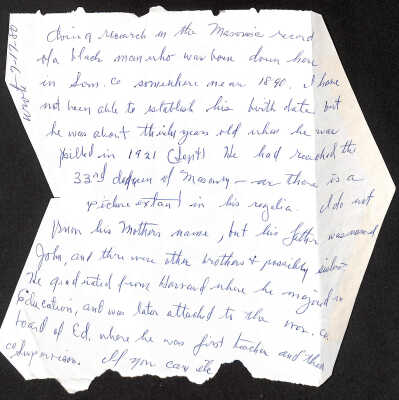 doing research in the Masonic record
of a black man who was born down here
in Som. Co somewhere near 1890. I have
not been able to establish his birth date but
he was about thirty years old when he was
killed in 1921 (Sept) He had reached the
33rd degree of Masonry - as there is a
picture extant in his regalia. I do not
know his Mothers name, but his father was named
John, and there were other brothers & possibly sister
He graduated from Howard where he majored in
Education, and was later attached to the Wor. Co.
board of Ed. where he was first teacher and then
Supervisor. If you can